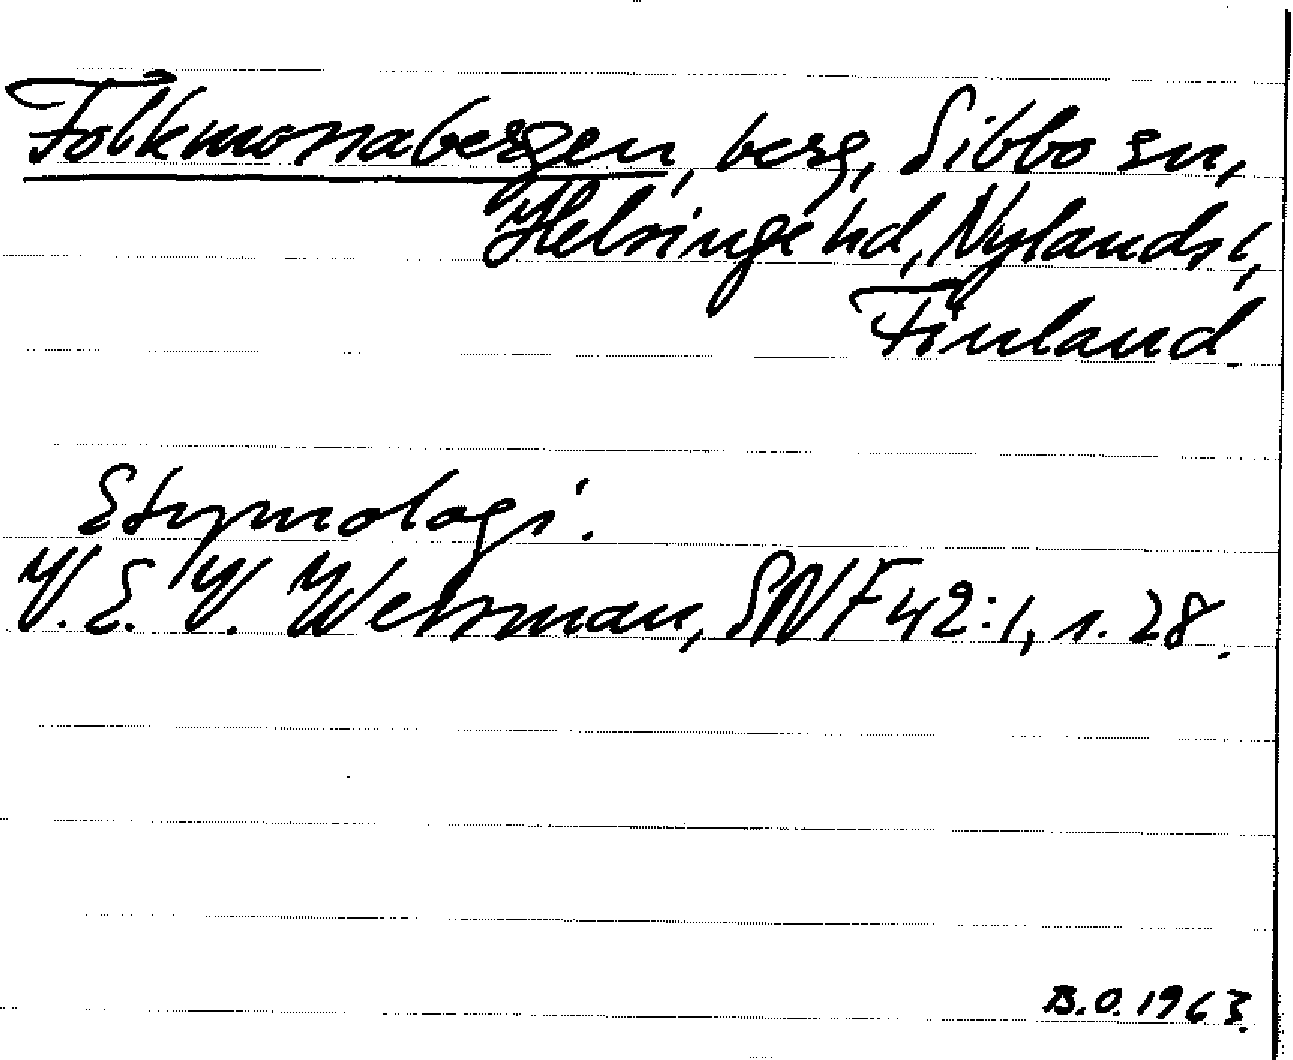 Folkmossabergen, berg, Sibbo sn,
Helsinge hd, Nylands l,
Finland
Etymologi.
V. E. V. Wessman, SNF 42:1, s. 28.
B.O. 1963.